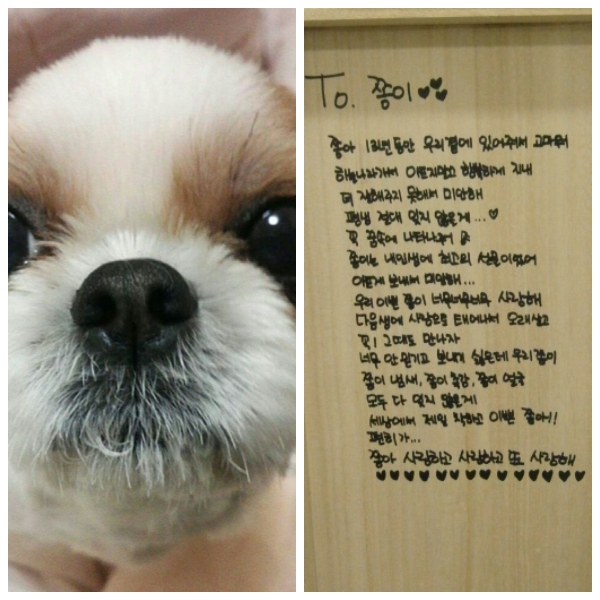 To. 쫑이♥♥♥
쫑아 13년동안 우리곁에 있어주어서 고마워
하늘나라가서 아프지말고 행복하게 지내
더 잘해주지 못해서 미안해
평생 절대 잊지 않을게...♡
꼭 꿈속에 나타나줘
쫑이는 내인생에 최고의 선물이었어
이렇게 보내서 미안해...
우리 이쁜 쫑이 너무너무너무 사랑해
다음생에 사람으로 태어나서 오래살고
꼭! 그때도 만나자
너무 안 믿기고 보내기 싫은데 우리 쫑이
쫑이 냄새, 쫑이 촉감, 쫑이 얼굴
모두 다 잊지 않을게
세상에서 제일 착하고 이쁜 쫑아!!
편히가...
쫑아 사랑하고 사랑하고 또 사랑해
♥♥♥♥♥♥♥♥♥♥♥♥♥